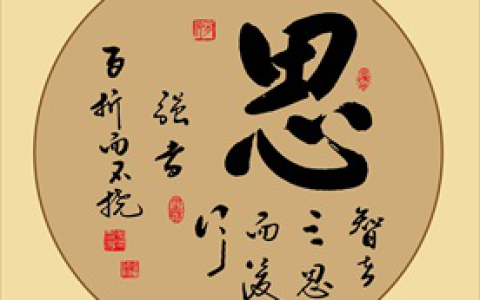 思
智者
三思
而後
行
强者
百折而不挠